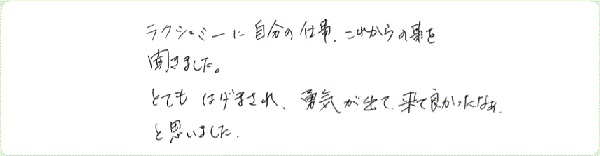 ラクシュミーに自分の仕事、これからの事を
聞きました。
とても はげまされ、勇気が出て、来て良かったなぁ
と思いました。